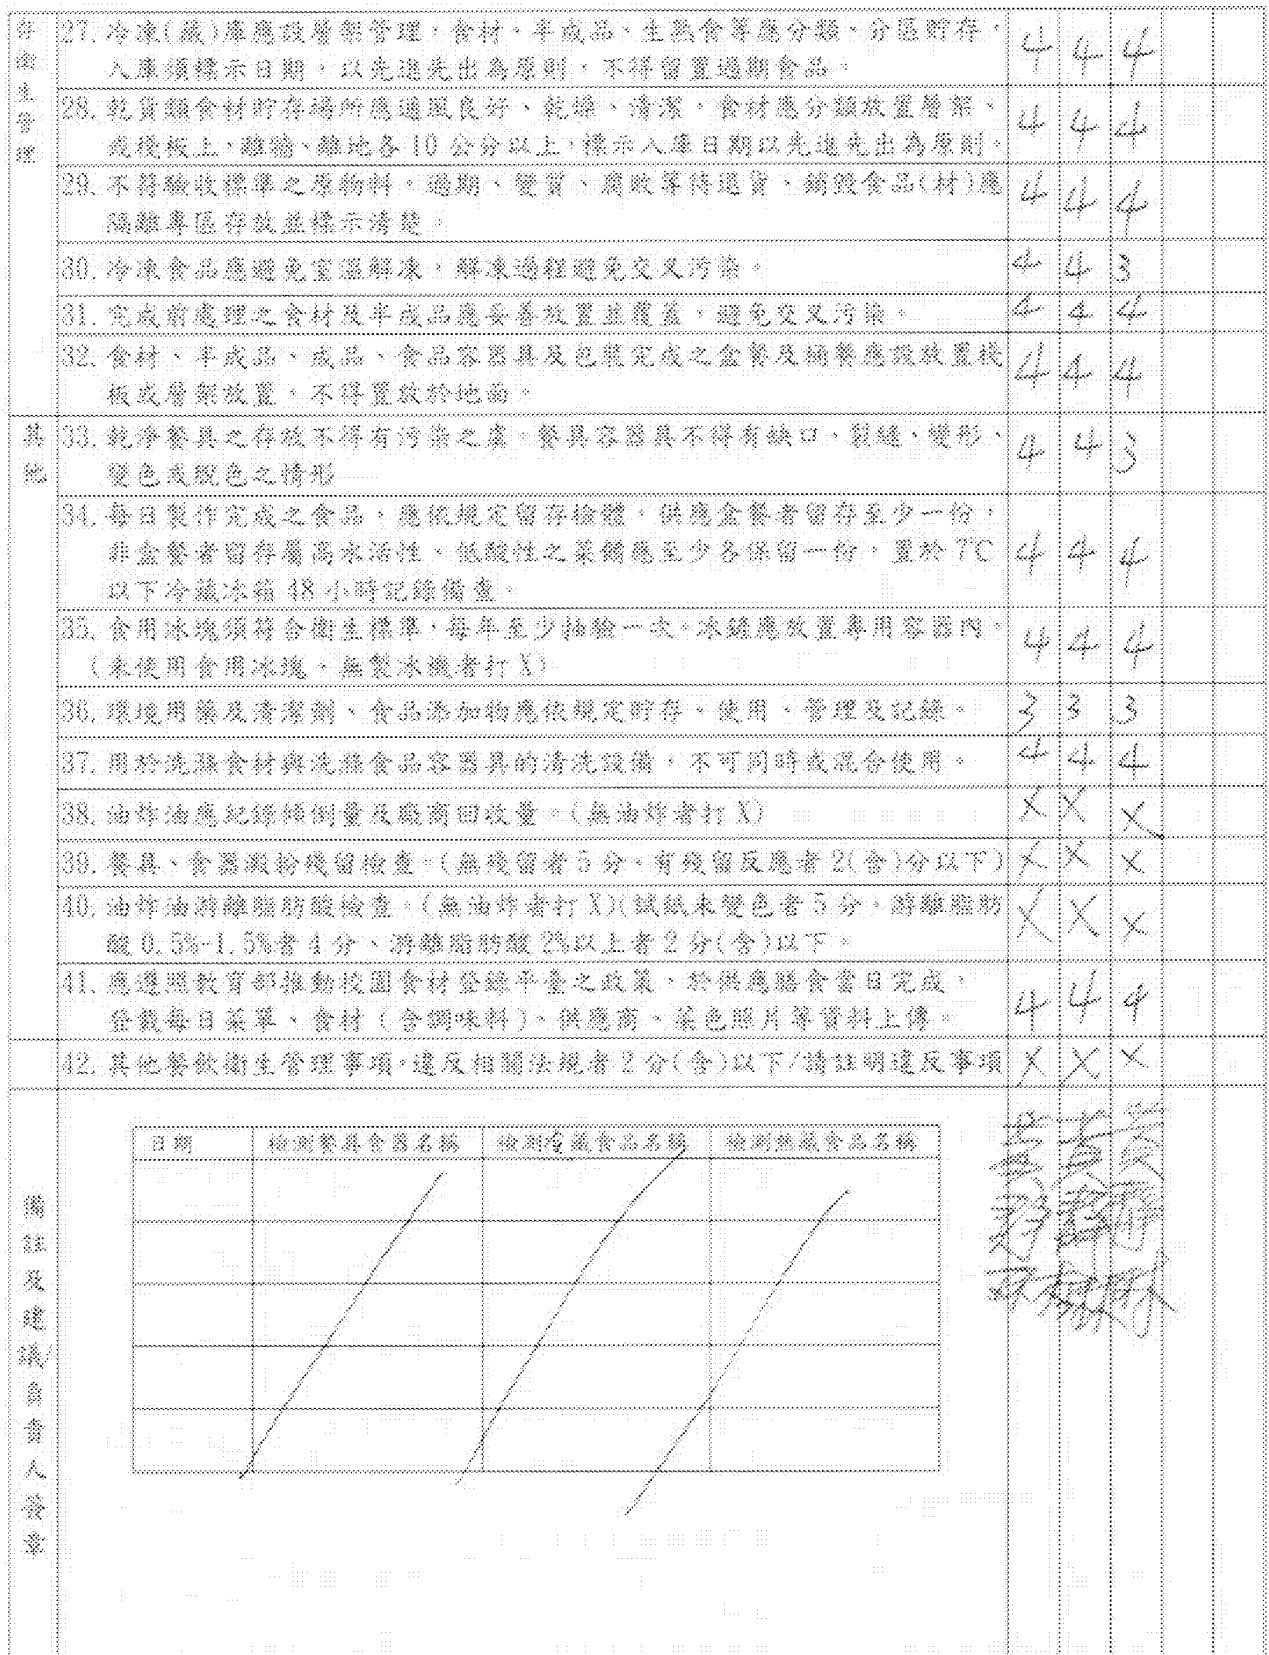 存衛生管理
27. 冷凍(藏)庫應設層架管理，食材、半成品、生熟食等應分類、分區貯存， 4 4 4
入庫須標示日期，以先進先出為原則，不得留置過期食品。
28. 乾貨類食材貯存場所應通風良好、乾燥、清潔，食材應分類放置層架、 4 4 4
或棧板上，離牆、離地各 10 公分以上，標示入庫日期以先進先出為原則。
29. 不符驗收標準之原物料，過期、變質、腐敗等待退貨、銷毀食品(材)應 4 4 4
隔離專區存放並標示清楚。
30. 冷凍食品應避免室溫解凍，解凍過程避免交叉污染。 4 4 3
31. 完成前處理之食材及半成品應妥善放置並覆蓋，避免交叉污染。 4 4 4
32. 食材、半成品、成品、食品容器具及包裝完成之盒餐及桶餐應設放置棧 4 4 4
板或層架放置，不得置放於地面。
其他
33. 乾淨餐具之存放不得有污染之虞。餐具容器具不得有缺口、裂縫、變形、 4 4 3
變色或脫色之情形
34. 每日製作完成之食品，應依規定留存檢體，供應盒餐者留存至少一份，
非盒餐者留存屬高水活性、低酸性之菜餚應至少各保留一份，置於 7℃ 4 4 4
以下冷藏冰箱 48 小時記錄備查。
35. 食用冰塊須符合衛生標準，每年至少抽驗一次。冰鏟應放置專用容器內。 4 4 4
(未使用食用冰塊、無製冰機者打 X)
36. 環境用藥及清潔劑、食品添加物應依規定貯存、使用、管理及記錄。 3 3 3
37. 用於洗滌食材與洗滌食品容器具的清洗設備，不可同時或混合使用。 4 4 4
38. 油炸油應紀錄傾倒量及廠商回收量。(無油炸者打 X) X X X
39. 餐具、食器澱粉殘留檢查。(無殘留者 5 分、有殘留反應者 2(含)分以下) X X X
40. 油炸油游離脂肪酸檢查。(無油炸者打 X)(試紙未變色者 5 分、游離脂肪 X X X
酸 0.5%-1.5%者 4 分、游離脂肪酸 2%以上者 2 分(含)以下。
41. 應遵照教育部推動校園食材登錄平臺之政策，於供應膳食當日完成， 4 4 4
登載每日菜單、食材（含調味料）、供應商、菜色照片等資料上傳。
42. 其他餐飲衛生管理事項，違反相關法規者 2 分(含)以下/請註明違反事項 X X X
備註及建議/負責人簽章
日期 檢測餐具食器名稱 檢測冷藏食品名稱 檢測熱藏食品名稱